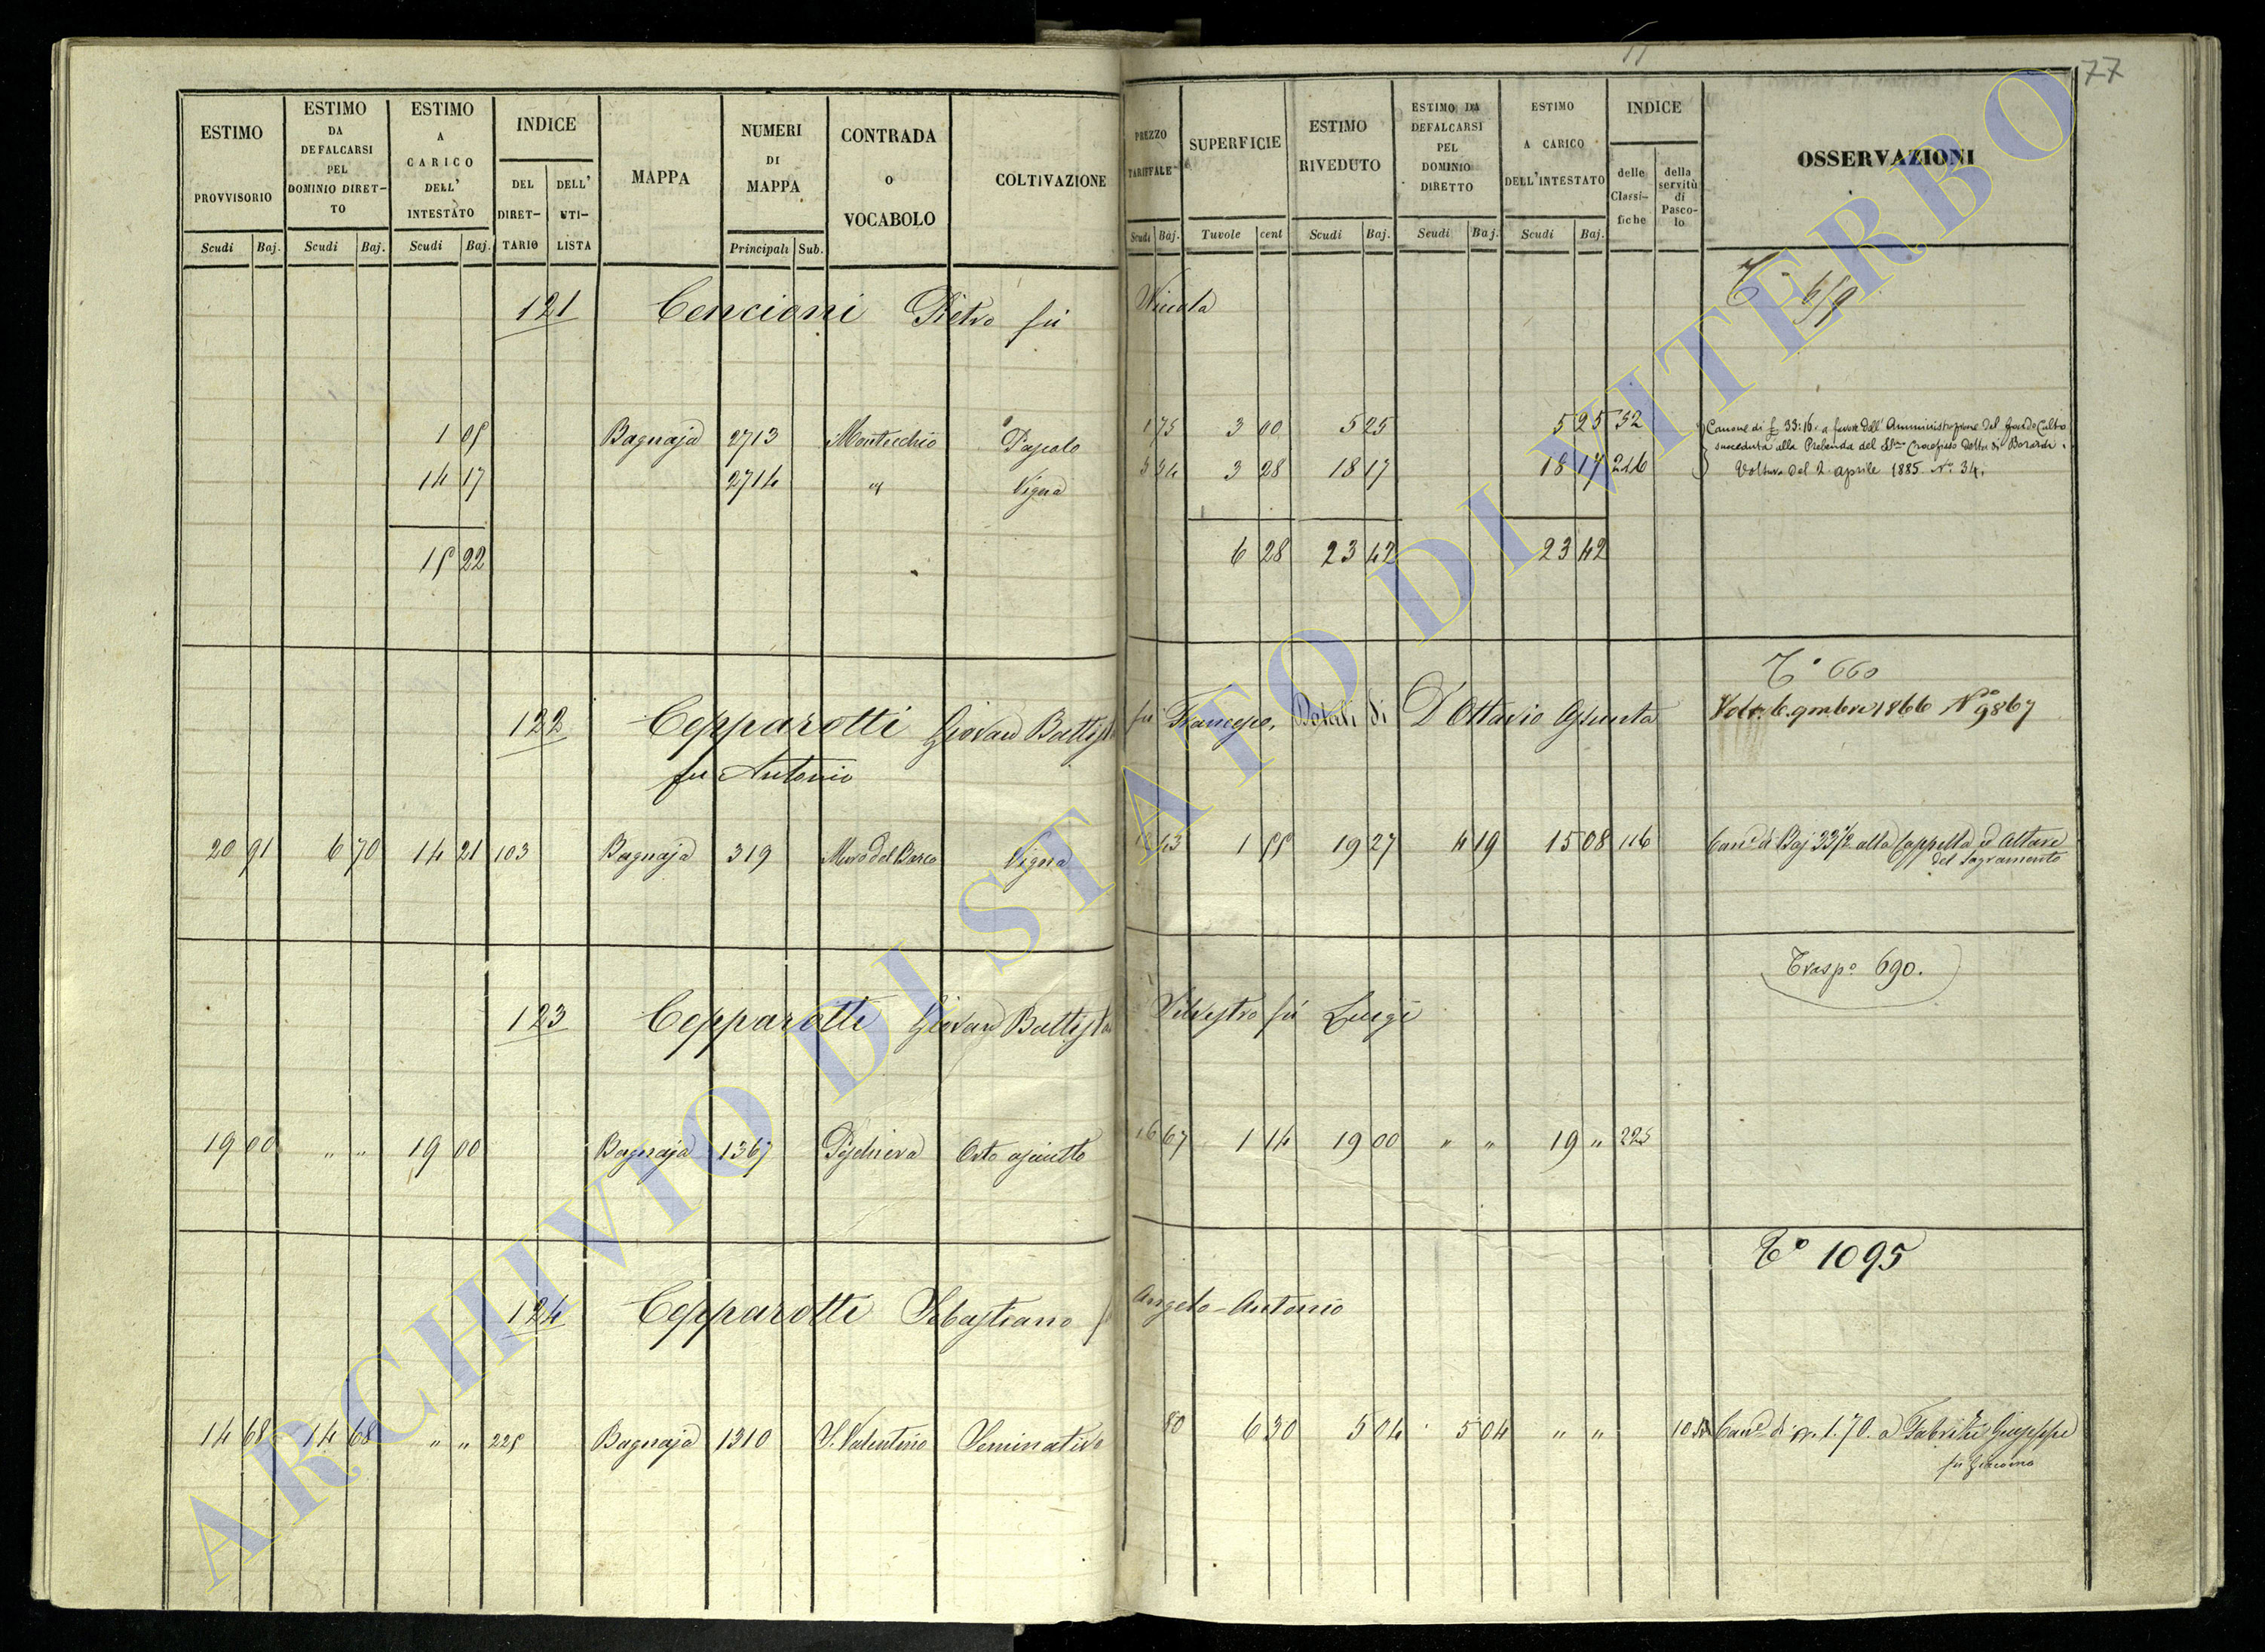 77
ESTIMO PROVVISORIO Scudi Baj.
ESTIMO DA DEFALCARSI PEL DOMINIO DIRETTO Scudi Baj.
ESTIMO A CARICO DELL' INTESTATO Scudi Baj.
INDICE DEL DIRETTARIO DELL' UTILISTA
MAPPA
NUMERI DI MAPPA Principali Sub.
CONTRADA O VOCABOLO
COLTIVAZIONE
PREZZO TARIFFALE Scudi Baj.
SUPERFICIE Tavole cent
ESTIMO RIVEDUTO Scudi Baj.
ESTIMO DA DEFALCARSI PEL DOMINIO DIRETTO Scudi Baj.
ESTIMO A CARICO DELL'INTESTATO Scudi Baj.
INDICE delle Classifiche della servitù di Pascolo
OSSERVAZIONI
121 Cencioni Pietro fù Nicola
1 05 Bagnaja 2713 Montecchio Pascolo 1 75 3 00 5 25 5 25 52
14 17 2714 " Vigna 5 54 3 28 18 17 18 17 216
Canone di £ 33:16. a favore dell' Amministrazione del fondo Culto
succeduta alla Prebenda del SSmo Crocefisso detta di
Voltura del 2 aprile 1885 No. 34.
15 22 6 28 23 42 23 42
To 660
122 Cepparotti Giovan Battista fù Francesco, Dotali di D'Ottavio Assunta Volta. 6. 9mbre 1866 No 9867
fu Antonio
20 91 6 70 14 21 103 Bagnaja 319 Muro del Barco Vigna 12 43 1 55 19 27 4 19 15 08 116 Cane. di Baj 33 1/2 alla Cappella ed Altare
del Sagramento
Traspo. 690.
123 Cepparotti Giovan Battista Silvestro fù Luigi
19 00 " " 19 00 Bagnaja 1367 Peschiera Orto asciutto 16 67 1 14 19 00 " " 19 " 225
To 1095
124 Cepparotti Sebastiano f Angelo-Antonio
14 68 14 68 " " 225 Bagnaja 1310 S. Valentino Seminativo 80 6 30 5 04 5 04 " " Cane. di 1.70. a Fabrizi Giuseppe
fù Giacomo
ARCHIVIO DI STATO DI VITERBO